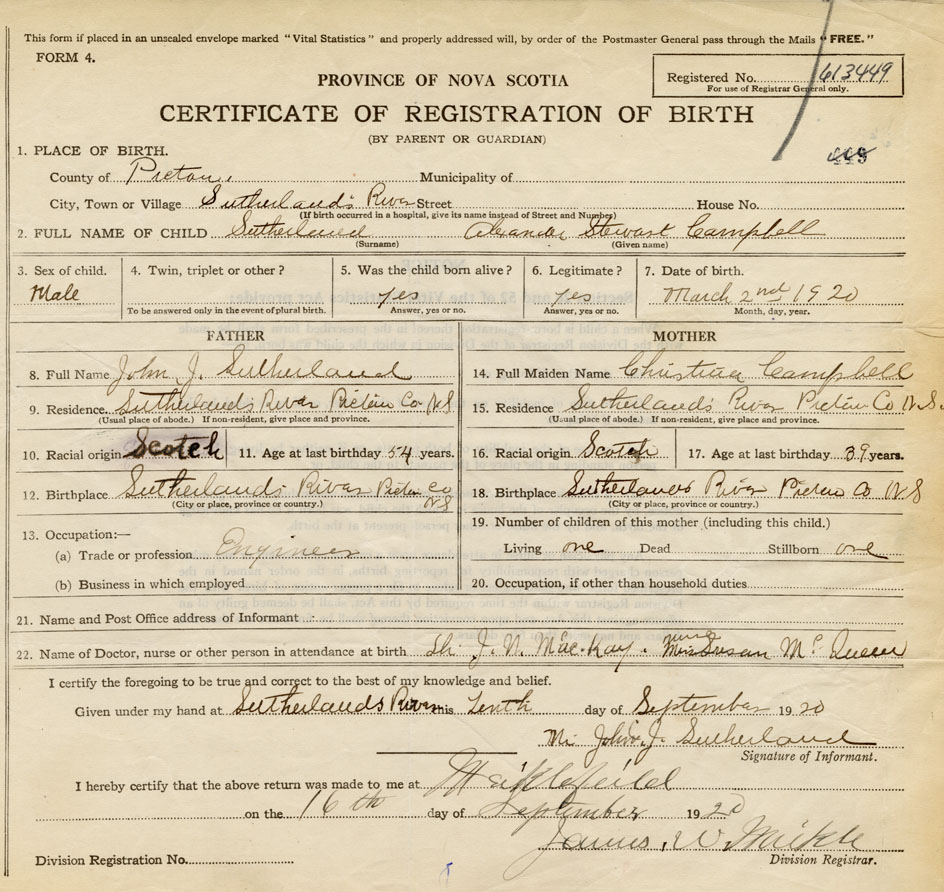 This form if placed in an unsealed envelope marked "Vital Statistics" and properly addressed will, by order of the Postmaster General pass through the Mails "FREE."
FORM 4.
PROVINCE OF NOVA SCOTIA
Registered No. 613449
For use of Registrar General only.
CERTIFICATE OF REGISTRATION OF BIRTH
(BY PARENT OR GUARDIAN)
1. PLACE OF BIRTH.
County of Pictou, Municipality of
City, Town or Village Sutherland's River Street House No.
(If birth occurred in a hospital, give its name instead of Street and Number)
2. FULL NAME OF CHILD Sutherland Alexander Stewart Campbell
(Surname) (Given name)
3. Sex of child. 4. Twin, triplet or other? 5. Was the child born alive? 6. Legitimate? 7. Date of birth.
Male yes yes March 2nd 1920
To be answered only in the event of plural birth. Answer, yes or no. Answer, yes or no. Month, day, year.
FATHER MOTHER
8. Full Name John J. Sutherland 14. Full Maiden Name Christina Campbell
9. Residence. Sutherland's River Pictou Co NS 15. Residence Sutherland's River Pictou Co N.S.
(Usual place of abode.) If non-resident, give place and province. (Usual place of abode.) If non-resident, give place and province.
10. Racial origin Scotch 11. Age at last birthday 54 years. 16. Racial origin Scotch 17. Age at last birthday 39 years.
12. Birthplace Sutherlands River Pictou Co NS 18. Birthplace Sutherlands River Pictou Co NS
(City or place, province or country.) (City or place, province or country.)
13. Occupation:— 19. Number of children of this mother (including this child.)
(a) Trade or profession Engineer Living one Dead Stillborn one
(b) Business in which employed 20. Occupation, if other than household duties
21. Name and Post Office address of Informant :
22. Name of Doctor, nurse or other person in attendance at birth J. W. MacKay. nurse Susan McQueen
I certify the foregoing to be true and correct to the best of my knowledge and belief.
Given under my hand at Sutherlands River this Tenth day of September 1920
John J. Sutherland
Signature of Informant.
I hereby certify that the above return was made to me at
on the 16th day of September 1920
James W. Mickle
Division Registration No. Division Registrar.